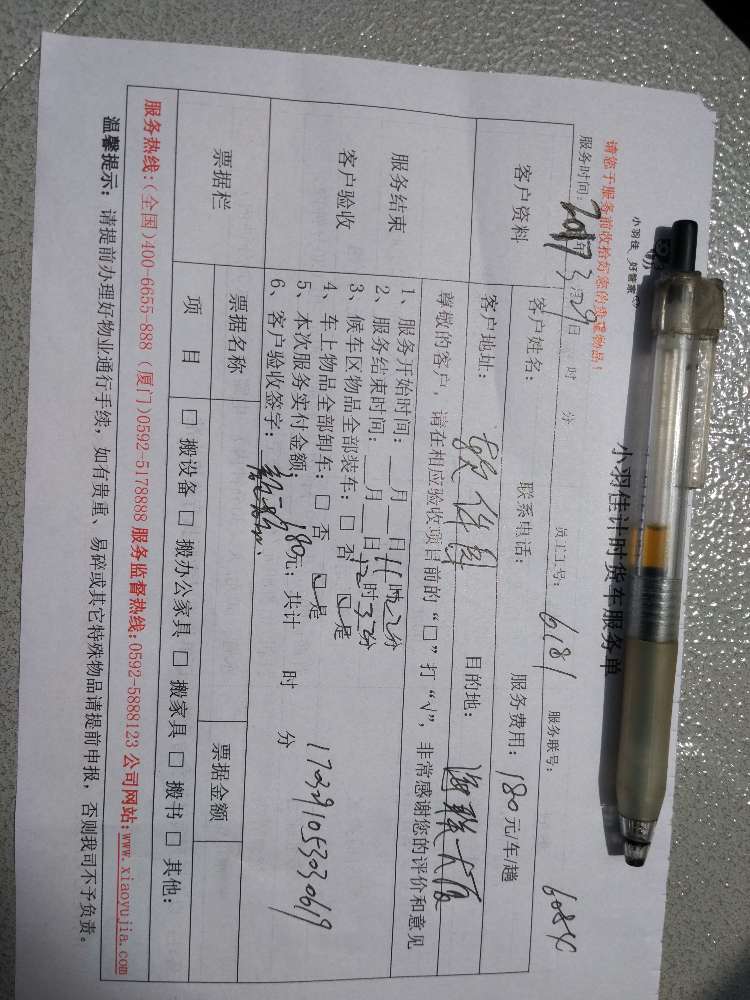 小羽佳 好管家
小羽佳计时货车服务单
请您于服务前收拾好您的贵重物品!
服务时间: 2017年3月29日 时 分 员工工号: 6181 服务联号: 6084
客户资料
客户姓名: 联系电话: 服务费用: 180元/车/趟
客户地址: 软件园 目的地: 海联大厦
服务结束
客户验收
尊敬的客户,请在相应验收项目前的“□”打“√”,非常感谢您的评价和意见
1、服务开始时间: 月 日11时22分
2、服务结束时间: 月 日12时32分
3、候车区物品全部装车:□ 否 □ 是
4、车上物品全部卸车:□ 否 □ 是
5、本次服务实付金额: 180元; 共计 时 分
6、客户验收签字:
172391053030619
票据栏
票据名称 票据金额
项 目 □ 搬设备 □ 搬办公家具 □ 搬家具 □ 搬书 □ 其他:
服务热线:(全国)400-6655-888 (厦门)0592-5178888 服务监督热线:0592-5888123 公司网站:www.xiaoyujia.com
温馨提示: 请提前办理好物业通行手续, 如有贵重、易碎或其它特殊物品请提前申报, 否则我司不予负责。